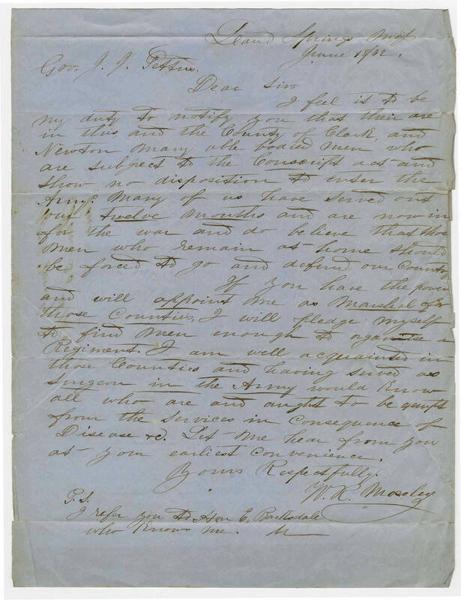 Springs Miss
June 1/62.
Gov. J. J. Pettus.
Dear Sir
I feel is to be
my duty to notify you that their are
in this and the County of Clark, and
Newton many able bodied men who
are subject to the Conscript act and
show no disposition to enter the
Army. Many of us have served out
our twelve months and are now in
for the war and do believe that those
men who remain at home should
be forced to go and defend our Country
If you have the power
and will appoint me as Marshal of
those Counties, I will pledge myself
to find men enough to organise a
Regiment. I am well acquainted in
those Counties and having served as
Surgeon in the Army would know
all who are and aught to be exempt
from the services in consequence of
Disease &c. Let me hear from you
at your earliest convenience.
Yours Respectfully.
W. R. Moseley
P.S.
I refer you to Hon E. Barksdale
who knows me. M